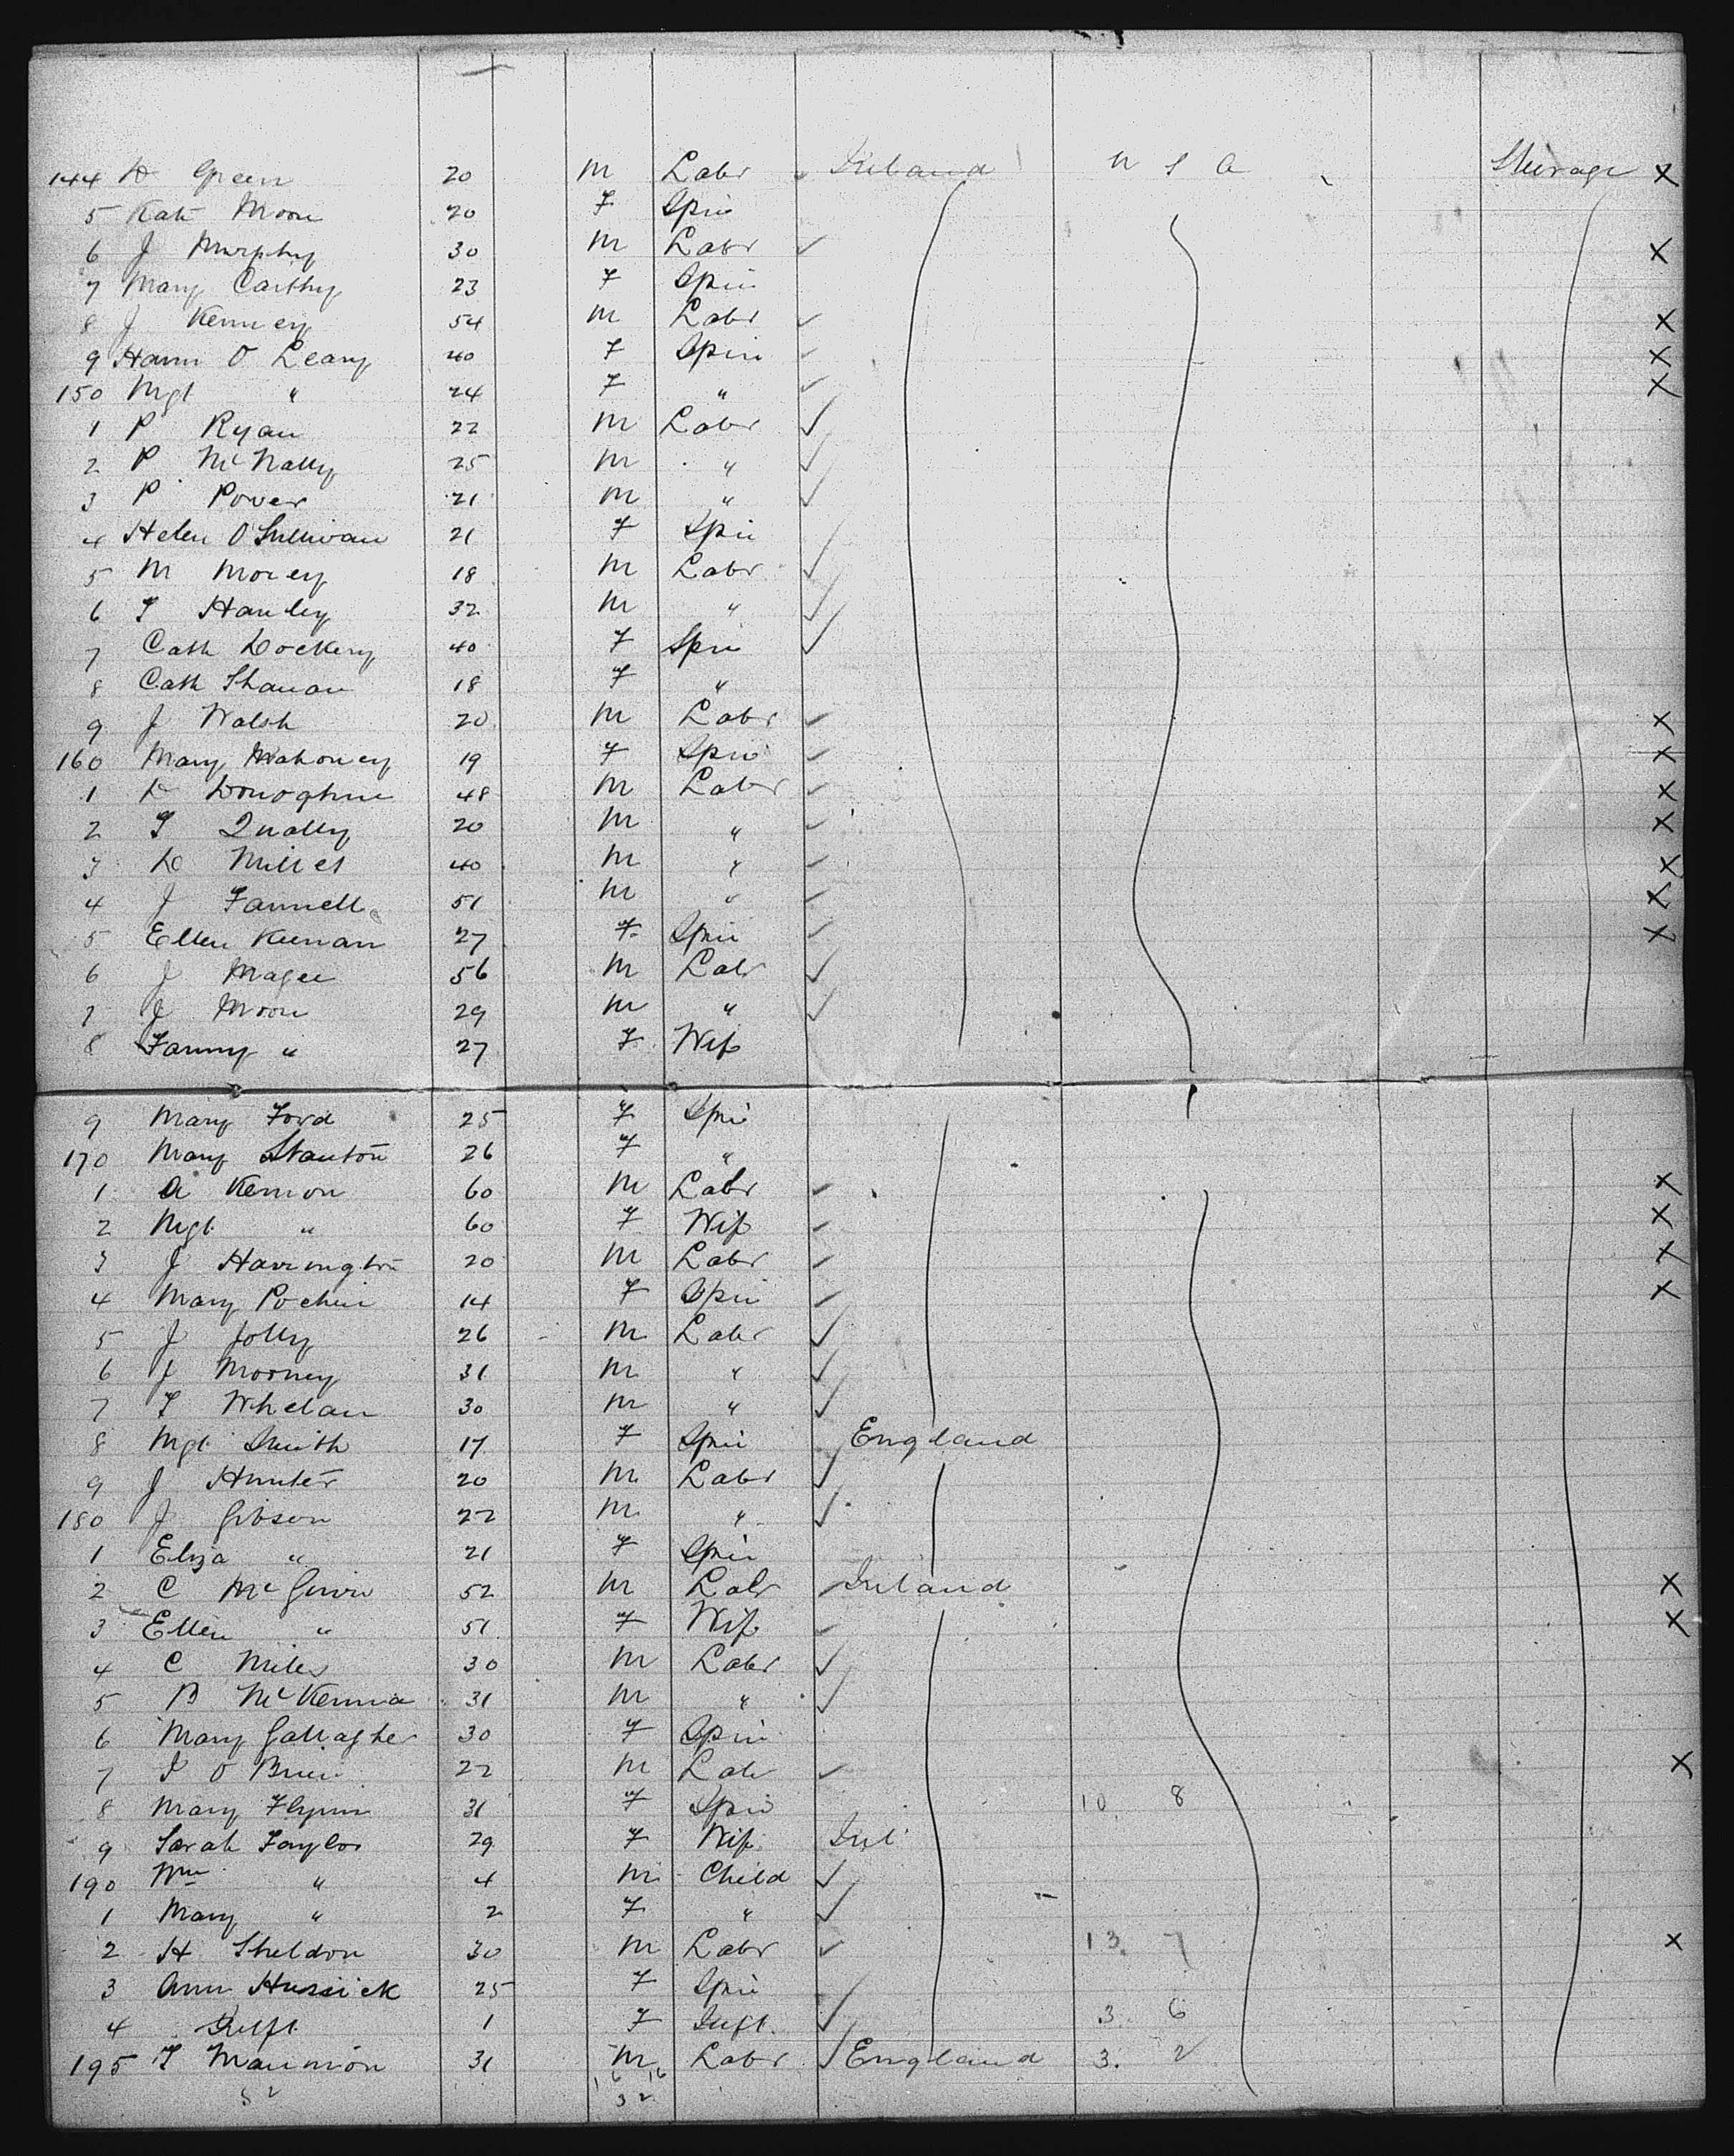 144 D Green 20 m Labr Ireland U S A Steerage X
5 Kate Moore 20 F Spin
6 J Murphy 30 m Labr ✓ X
7 Mary Carthy 23 F Spin
8 J Kenney 54 m Labr ✓ X
9 Hann O Leary 40 F Spin ✓ X
150 Mgt " 24 F " ✓ X
1 P Ryan 22 m Labr ✓
2 P McNally 25 m " ✓
3 P Power 21 m " ✓
4 Helen O'Sullivan 21 F Spin ✓
5 M Morey 18 m Labr ✓
6 T Hanley 32 m " ✓
7 Cath Dockery 40 F Spin ✓
8 Cath Shanan 18 F "
9 J Walsh 20 m Labr ✓ X
160 Mary Mahoney 19 F Spin ✓ X
1 D Donoghue 48 m Labr ✓ X
2 T Qually 20 m " ✓ X
3 D Miller 40 m " ✓ X
4 J Fannell 51 m " ✓ X
5 Ellen Keenan 27 F Spin ✓ X
6 J Magee 56 m Labr ✓
7 J Moore 29 m " ✓
8 Fanny " 27 F Wife
9 Mary Ford 25 F Spin
170 Mary Stanton 26 F "
1 A Kernon 60 m Labr ✓ X
2 Mgt " 60 F Wife ✓ X
3 J Harrington 20 m Labr ✓ X
4 Mary Pochin 14 F Spin ✓ X
5 J Jolly 26 m Labr ✓
6 J Mooney 31 m " ✓
7 T Whelan 30 m " ✓
8 Mgt Smith 17 F Spin England
9 J Hunter 20 m Labr ✓
180 J Gibson 22 m " ✓
1 Eliza " 21 F Spin
2 C McGuire 52 m Labr Ireland X
3 Ellen " 51 F Wife ✓ X
4 C Miles 30 m Labr ✓
5 B McKenna 31 m " ✓
6 Mary Gallagher 30 F Spin
7 P O Brien 22 m Labr ✓ X
8 Mary Flynn 31 F Spin 10 8
9 Sarah Taylor 29 F Wife Irel
190 Wm " 4 m Child ✓
1 Mary " 2 F " ✓
2 H Sheldon 30 m Labr ✓ 13. 7 X
3 Ann Hussick 25 F Spin ✓
4 Inft 1 F Inft. ✓ 3 6
195 T Mannion 31 m Labr ✓ England 3. 2
52 16 16
32